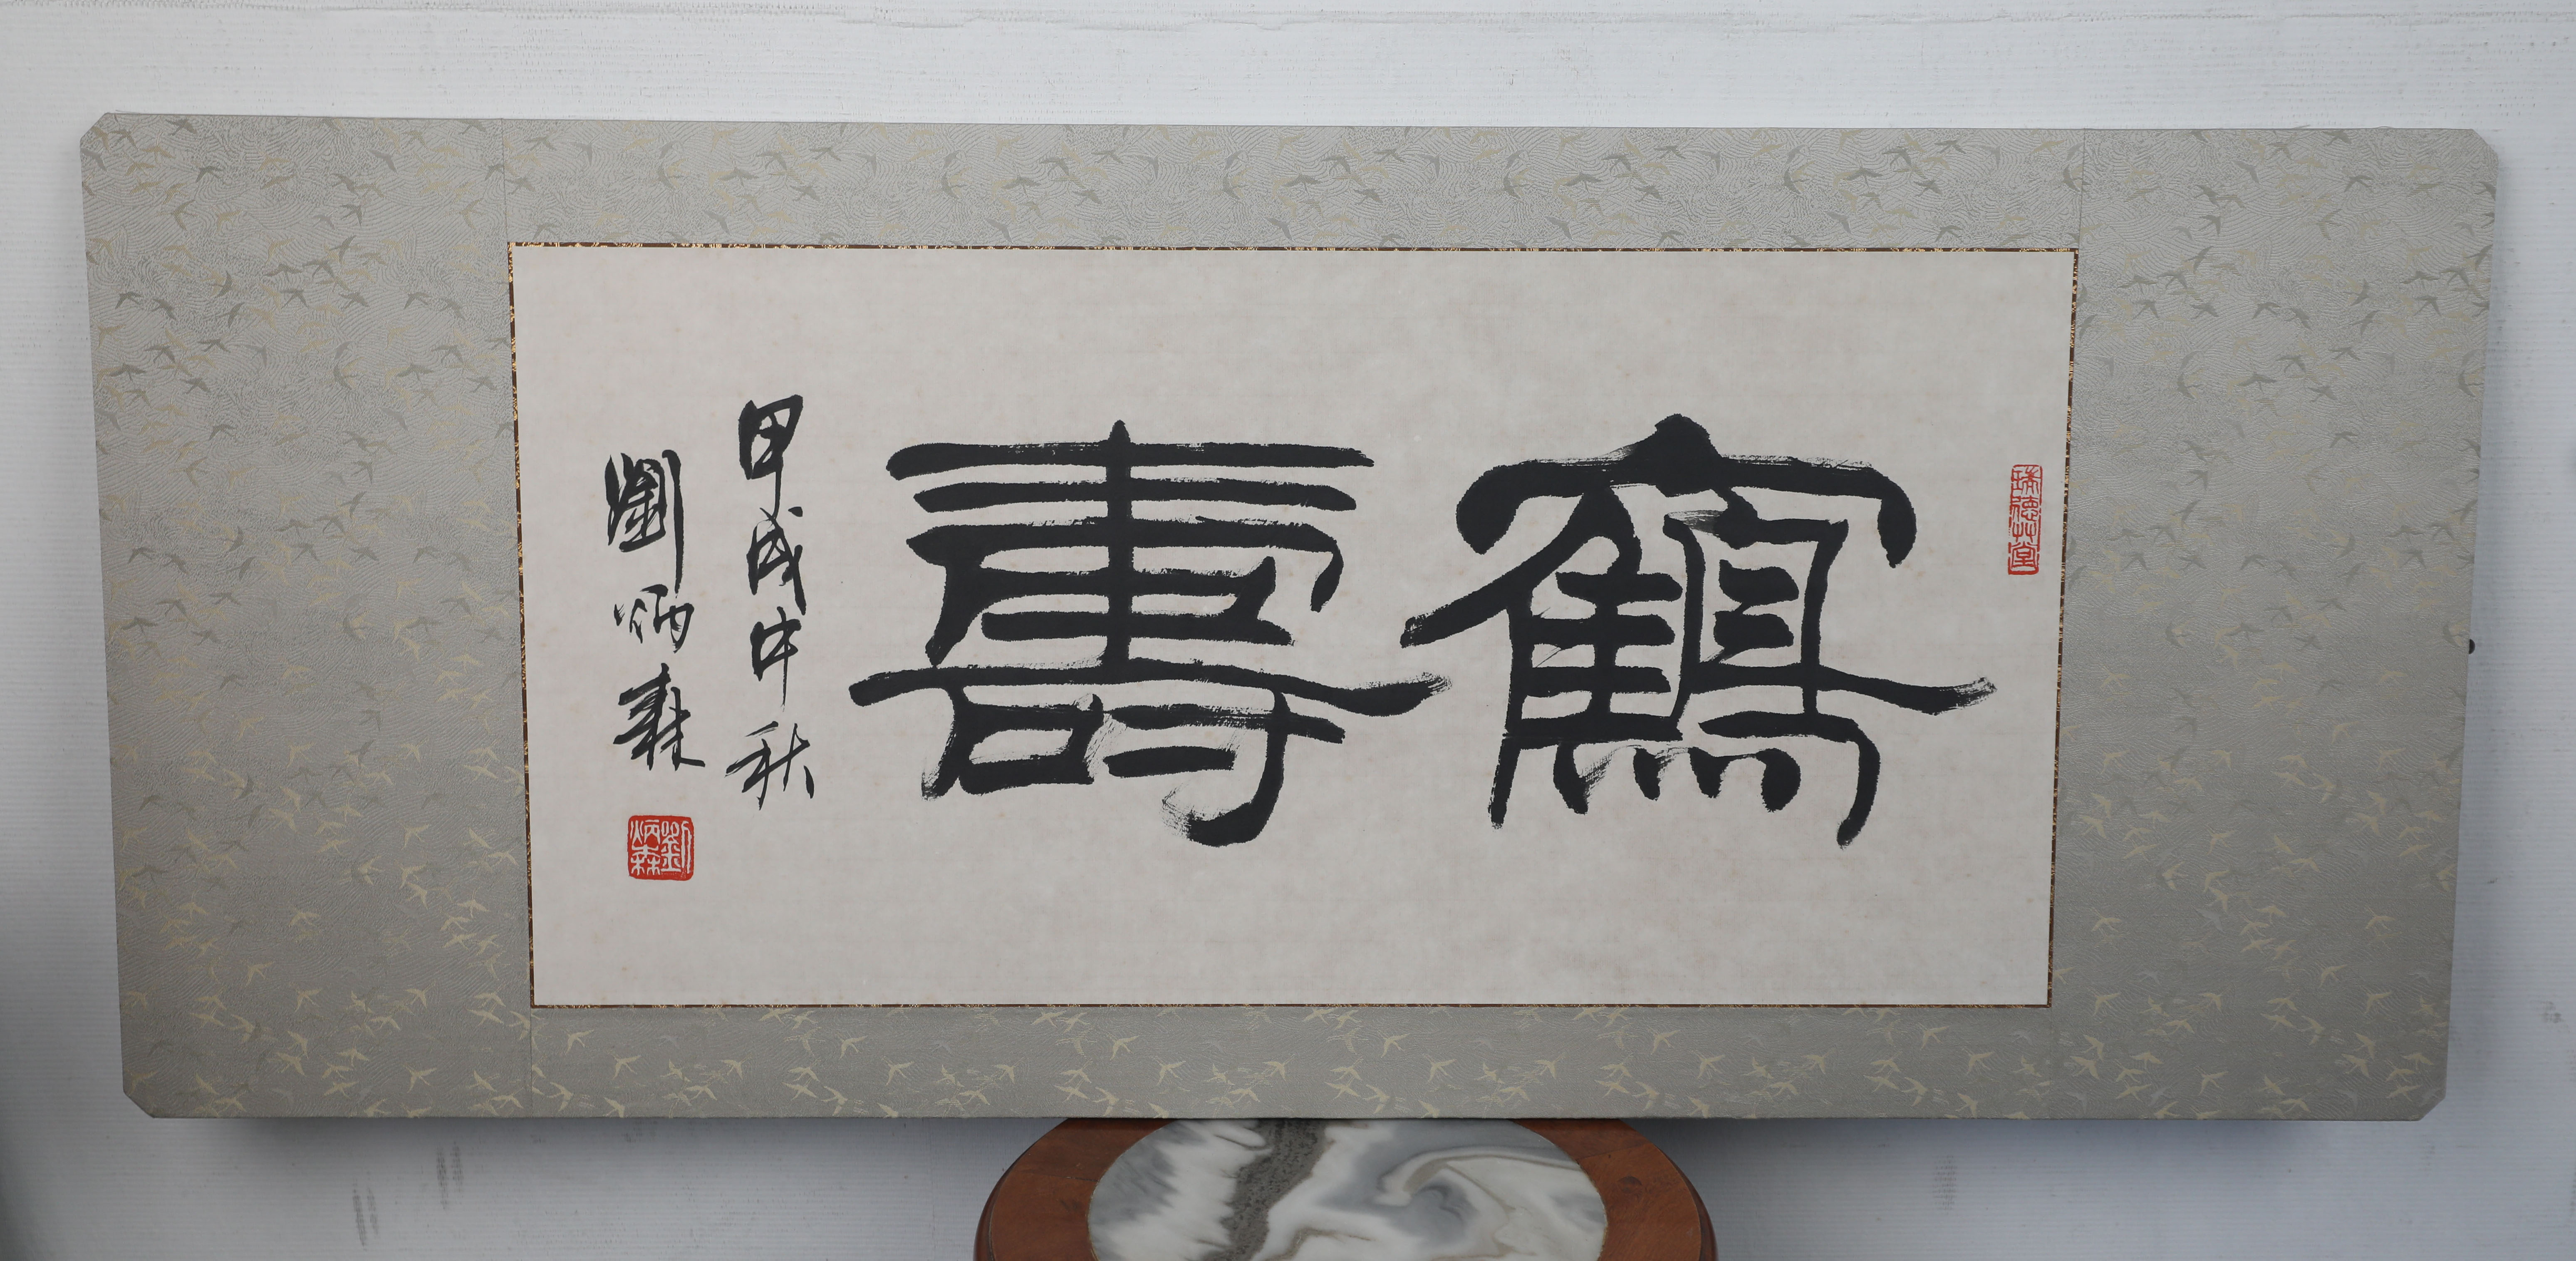 鶴壽
甲戌中秋
劉炳森
劉炳森